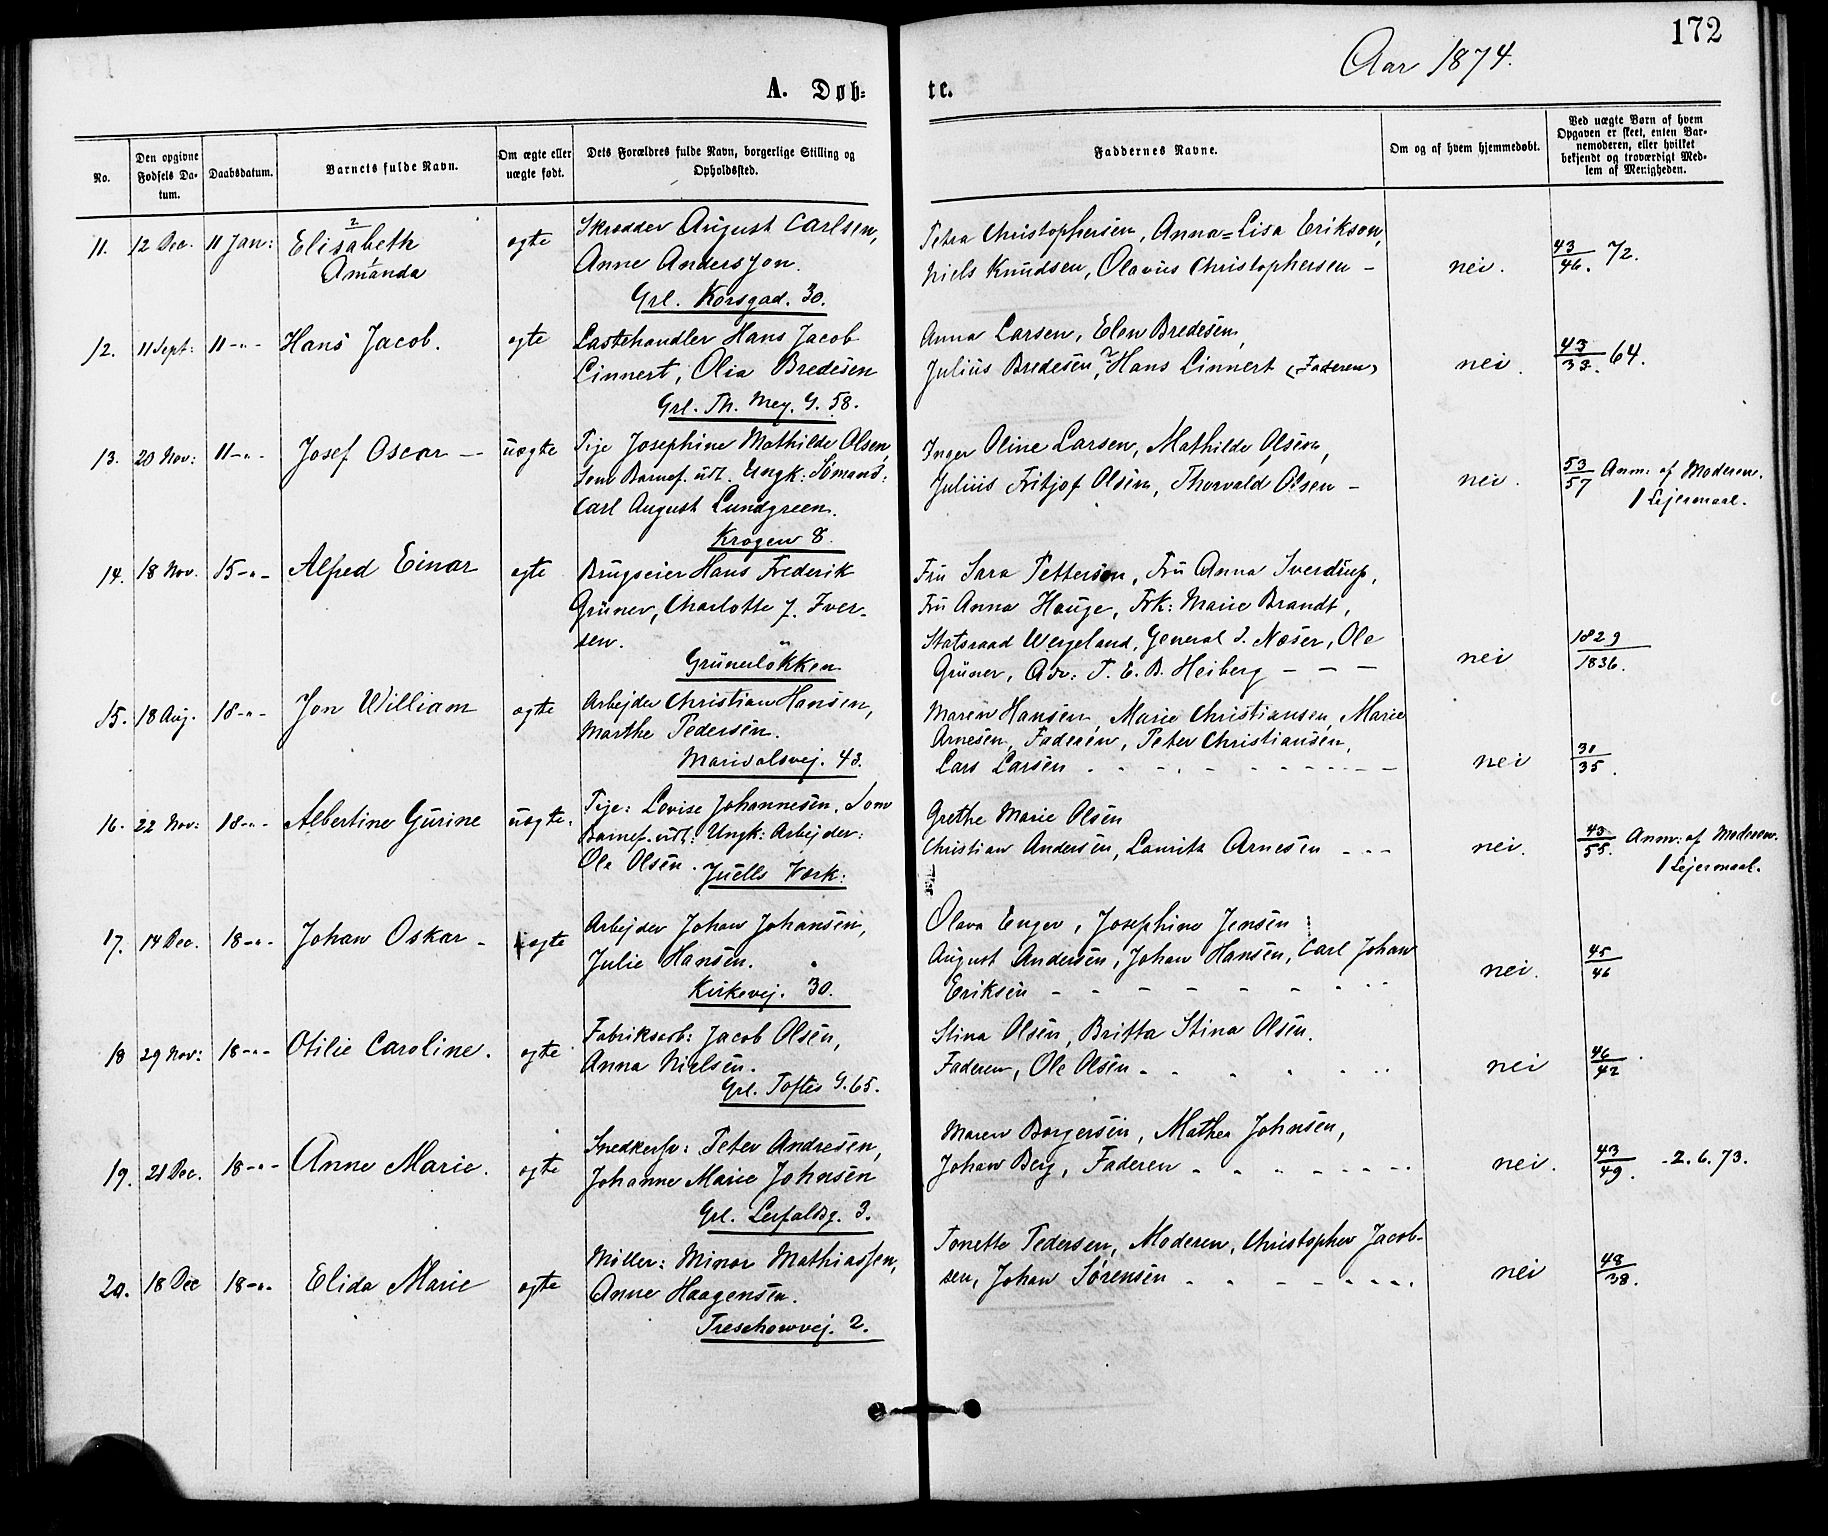 172
Aar 1874.
A. Døb- te.
No.
Den opgivne Fødsels Datum.
Daabsdatum.
Barnets fulde Navn.
Om ægte eller uægte født.
Dets Forældres fulde Navn, borgerlige Stilling og Opholdssted.
Faddernes Navne.
Om og af hvem hjemmedøbt.
Ved uægte Børn af hvem Opgaven er skeet, enten Barnemoderen, eller hvilket bekjendt og troværdigt Medlem af Menigheden.
11. 12 Dec. 11 Jan: Elisabeth 2 Amanda 1 ægte
Skrædder August Carlsen,
Anne Andersson.
Grl. Korsgad. 30.
Petra Christophersen, Anna=Lisa Erikson,
Niels Knudsen, Olavus Christophersen –
nei. 43/46. 72.
12. 11 Sept: 11 -"- Hans Jacob. ægte
Lastehandler Hans Jacob
Linnert, Olia Bredesen
Grl. Th. Mey. G. 58.
Anna Larsen, Elen Bredesen,
Julius Bredesen, Hans Linnert (Faderen)
nei. 43/33. 64.
13. 20 Nov: 11 -"- Josef Oscar – uægte
Pije Josephine Mathilde Olsen,
Som Barnef. udl. Ungk: Sømand:
Carl August Lundgreen.
Krogen 8.
Inger Oline Larsen, Mathilde Olsen,
Julius Fritjof Olsen, Thorvald Olsen –
nei. 53/57 Anm: af Moderen.
1 Lejermaal.
14. 18 Nov. 15 -"- Alfred Einar ægte
Brugseier Hans Frederik
Grüner, Charlotte J. Iver-
sen.
Grünerløkken
Fru Sara Petterson, Fru Anna Sverdrup,
Fru Anna Hauge, Frk: Marie Brandt,
Statsraad Wergeland, General I. Næser, Ole
Grüner, Adv: P. E. B. Heiberg – – –
nei 1829/1836.
15. 18 Aug. 18 -"- Jon William ægte
Arbejder Christian Hansen,
Marthe Pedersen.
Maridalsvej. 43.
Maren Hansen, Marie Christiansen, Marie
Arnesen, Faderen, Peter Christiansen,
Lars Larsen
nei 30/35.
16. 22 Nov: 18 -"- Albertine Gurine uægte.
Pije: Lovise Johannesen. Som
Barnef. udl: Ungk: Arbejder:
Ole Olsen.
Juells Værk:
Grethe Marie Olsen
Christian Andersen, Lauritz Arnesen – – –
nei. 43/55. Anm: af Moderen.
1 Lejermaal.
17. 14 Dec. 18 -"- Johan Oskar – ægte
Arbejder Johan Johansen,
Julie Hansen.
Kirkevej. 30.
Olava Enger, Josephine Jensen
August Andersen, Johan Hansen, Carl Johan
Eriksen
nei. 45/46
18 29 Nov: 18 -"- Otilie Caroline. ægte
Fabriksarb: Jacob Olsen,
Anna Nielsen.
Grl. Toftes G. 65.
Stina Olsen, Britta Stina Olsen.
Faderen, Ole Olsen
nei 46/42
19. 21 Dec. 18 -"- Anne Marie. ægte
Snedkersv: Peter Andresen,
Johanne Marie Johnsen
Grl. Leirfaldsg. 3.
Maren Borgersen, Mathea Johnsen,
Johan Berg, Faderen
nei. 43/49. -2. 6. 73.
20. 18 Dec 18 -"- Elida Marie ægte
Møller: Minor Mathiassen,
Anne Haagensen.
Treschowvej. 2.
Tonette Pedersen, Moderen, Christopher Jacob-
sen, Johan Sørensen
nei 48/38.